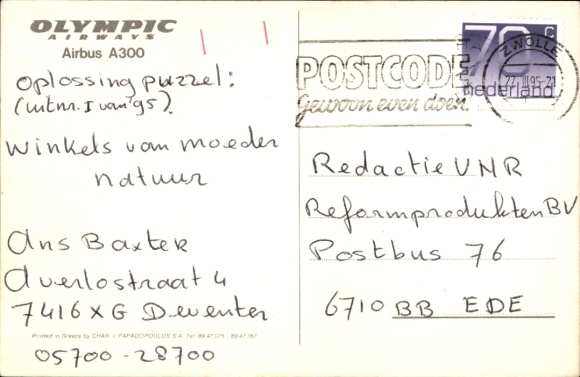 OLYMPIC
AIRWAYS
Airbus A300
Oplossing puzzel:
(uitnr. I van '95).
Winkels van moeder
natuur
Ans Baxter
Averlostraat 4
7416 XG Deventer
Printed in Greece by CHAR. I. PAPADOPOULOS S.A. Tel: 89.47.075 - 89.47.167
05700-28700
70 c
nederland
ZWOLLE
27.III.95-21
POSTCODE
Gewoon even doen.
Redactie VNR
Reformprodukten BV
Postbus 76
6710 BB EDE